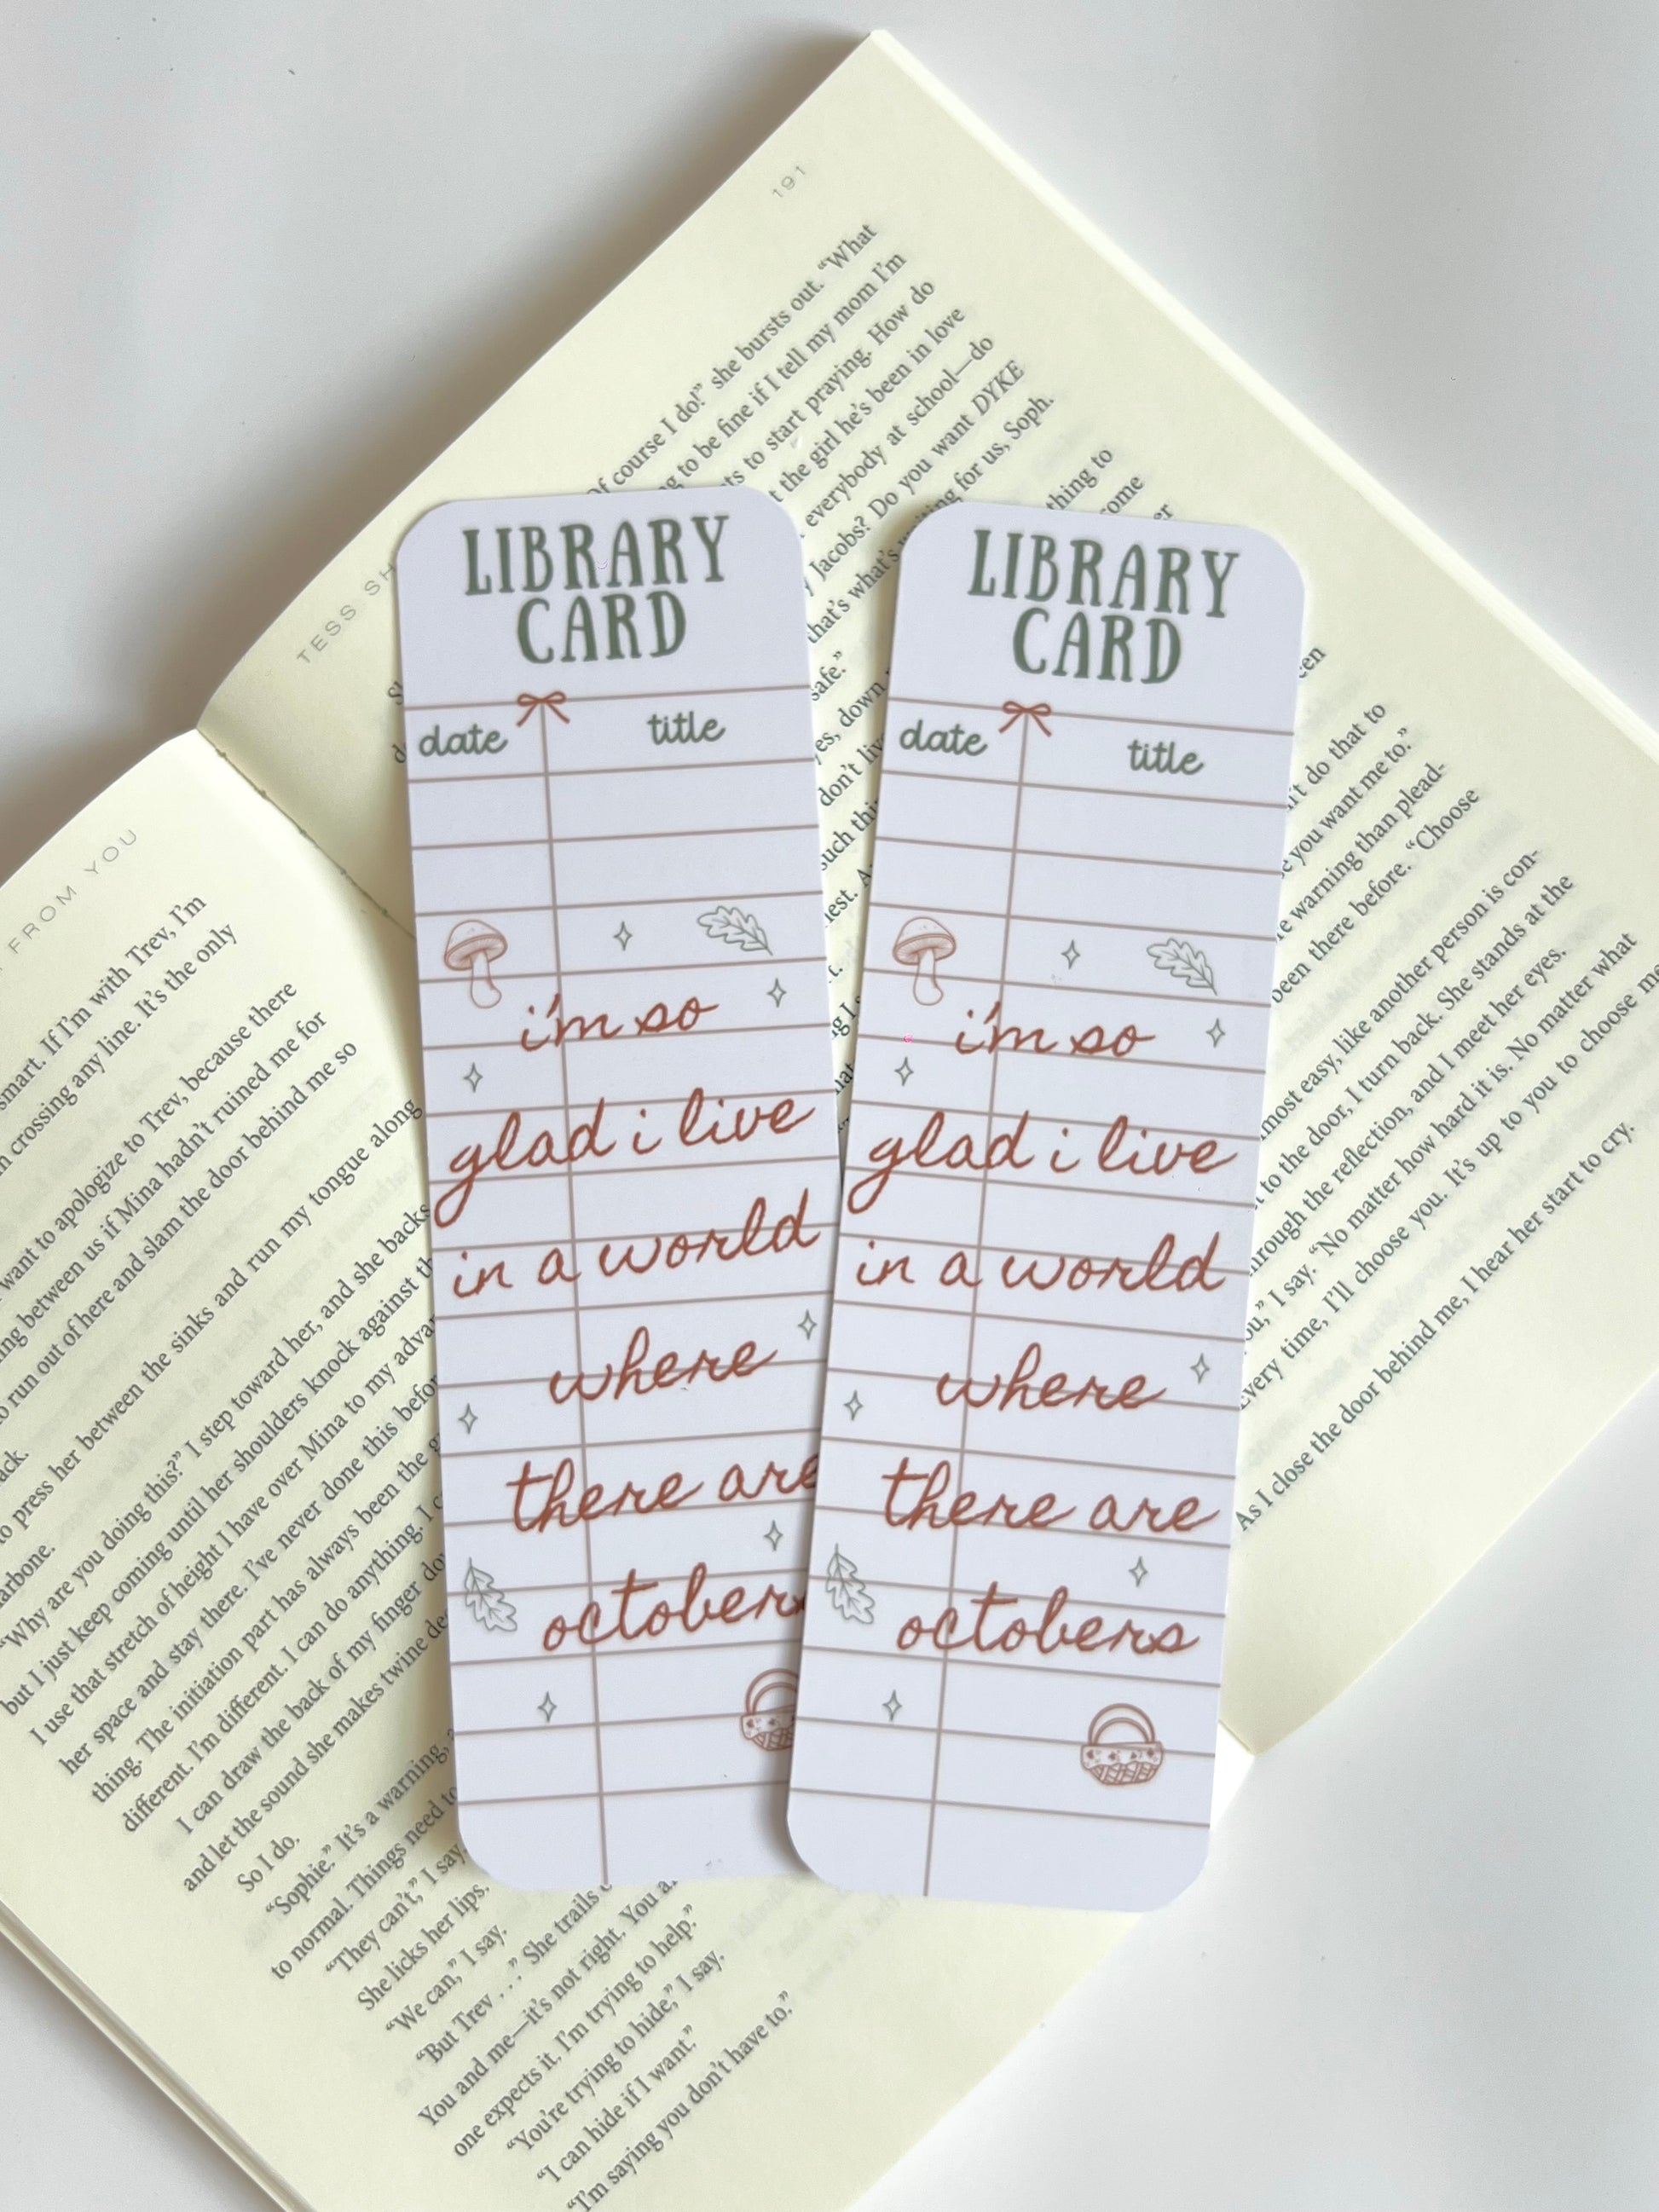 LIBRARY
CARD
date title
i'm so
glad i live
in a world
where
there are
octobers
LIBRARY
CARD
date title
i'm so
glad i live
in a world
where
there are
octobers
FROM YOU
smart. If I'm with Trev, I'm
crossing any line. It's the only
want to apologize to Trev, because there
between us if Mina hadn't ruined me for
run out of here and slam the door behind me so
press her between the sinks and run my tongue along
"Why are you doing this?" I step toward her, and she backs
but I just keep coming until her shoulders knock against
I use that stretch of height I have over Mina to my
her space and stay there. I've never done this
thing. The initiation part has always been the
different. I'm different. I can do anything. I
I can draw the back of my finger
and let the sound she makes twine
So I do.
"Sophie." It's a warning,
to normal. Things need to
"They can't," I say.
She licks her lips.
"We can," I say.
"But Trev . . ." She trails
You and me—it's not right. You
one expects it. I'm trying to help."
"You're trying to hide," I say.
"I can hide if I want."
"I'm saying you don't have to."
TESS
191
Of course I do!" she bursts out. "What
to be fine if I tell my mom I'm
to start praying. How do
the girl he's been in love
everybody at school—do
Jacobs? Do you want DYKE
that's what's for us, Soph.
thing to
safe."
down
don't
such
do that to
you want me to."
warning than plead-
been there before. "Choose
easy, like another person is con-
to the door, I turn back. She stands at the
through the reflection, and I meet her eyes.
I say. "No matter how hard it is. No matter what
Every time, I'll choose you. It's up to you to choose
As I close the door behind me, I hear her start to cry.